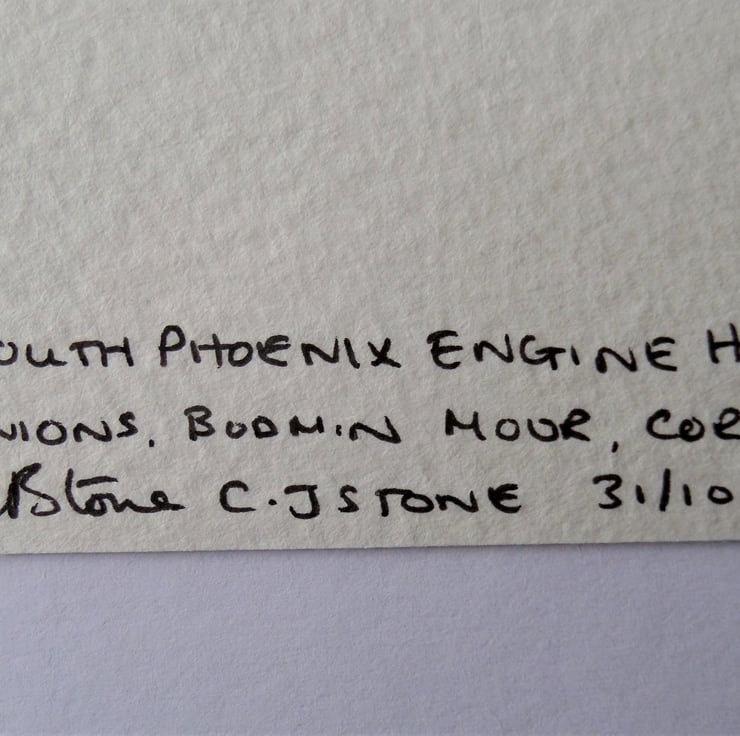 OUTH PHOENIX ENGINE H
NIONS, BODMIN MOOR, COR
CJStone C.J STONE 31/10